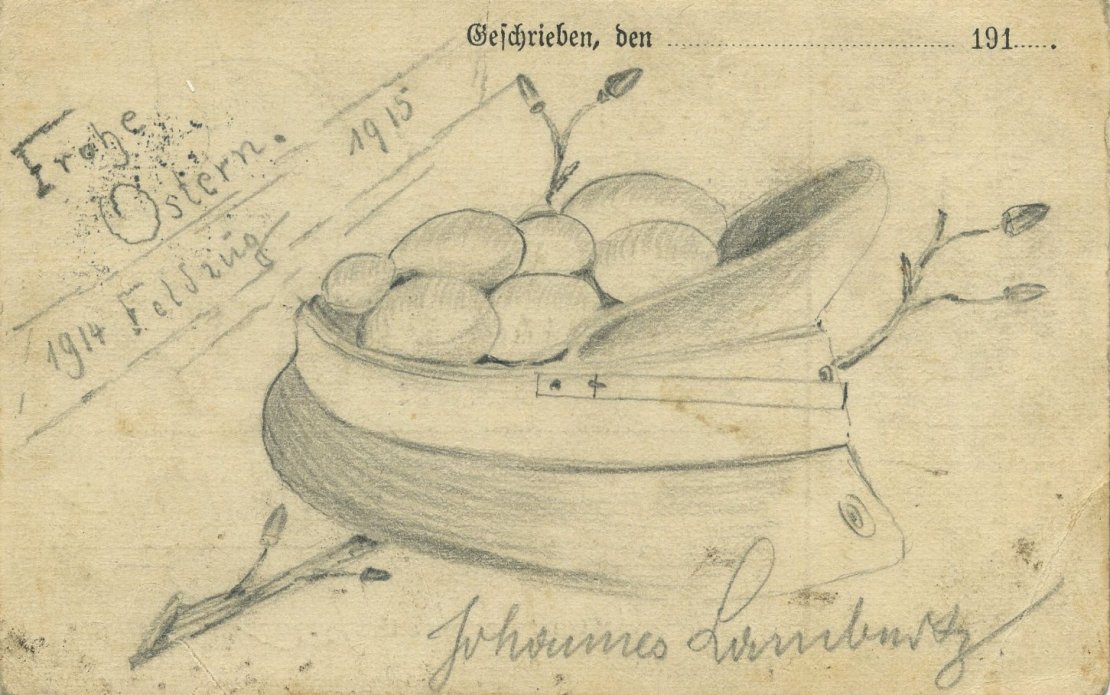 Geschrieben, den ........................ 191.....
Frohe
Ostern.
1914 Feldzug 1915
Johannes Lambertz